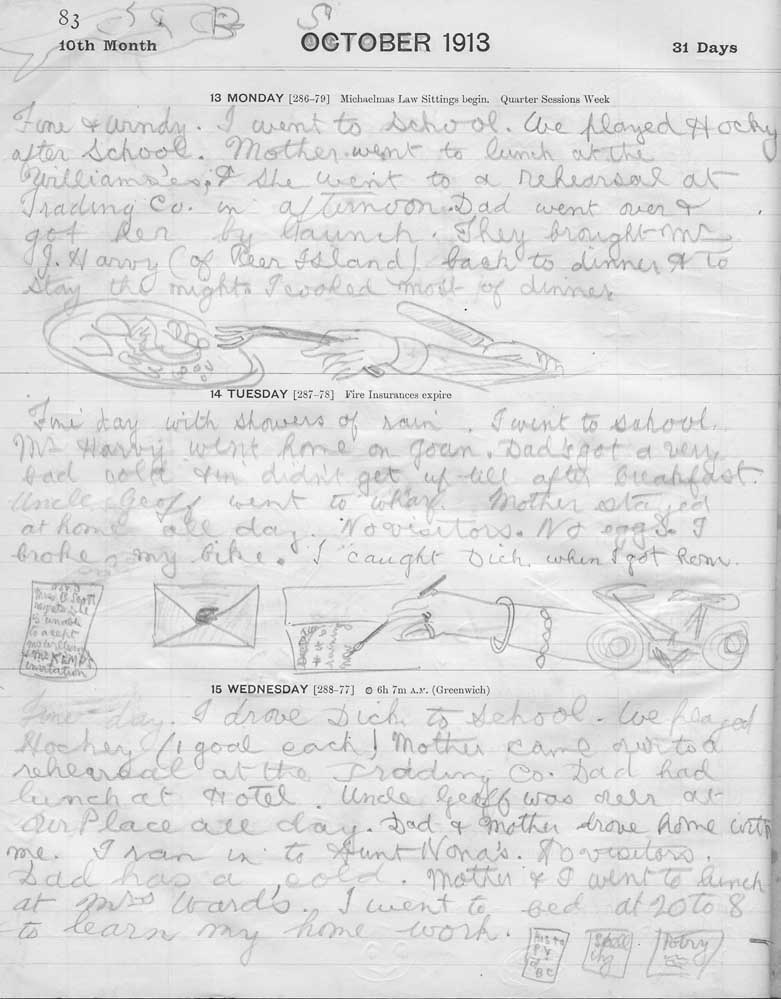 83
10th Month
OCTOBER 1913
31 Days
13 MONDAY [286-79] Michaelmas Law Sittings begin. Quarter Sessions Week
Fine & windy. I went to School. We played Hocky
after School. Mother went to lunch at the
Williams'es, & she went to a rehearsal at
Trading Co. in afternoon. Dad went over &
got her by launch. They brought Mr
J. Harvy (of Peer Island) back to dinner & to
stay the night. I cooked most of dinner.
14 TUESDAY [287-78] Fire Insurances expire
Fine day with showers of rain. I went to school.
Mr Harvy went home on Joan. Dad's got a very
bad cold & didn't get up till after breakfast.
Uncle Geoff went to wharf. Mother stayed
at home all day. No visitors. No eggs. I
broke my bike. I caught Dich when I got hom.
Mrs B. Scott
regrets she
is unable
to accept
invitation
15 WEDNESDAY [288-77] 6h 7m A.M. (Greenwich)
Fine day. I drove Dich to School. We played
Hockey (1 goal each) Mother came over to a
rehearsal at the Trading Co. Dad had
lunch at Hotel. Uncle Geoff was over at
our Place all day. Dad & Mother drove home with
me. I ran in to Aunt Nona's. No visitors.
Dad has a cold. Mother & I went to lunch
at Mrs Ward's. I went to bed at 20 to 8
to learn my home work.
Histo
ry
of
BC
Spell
ing
Potry